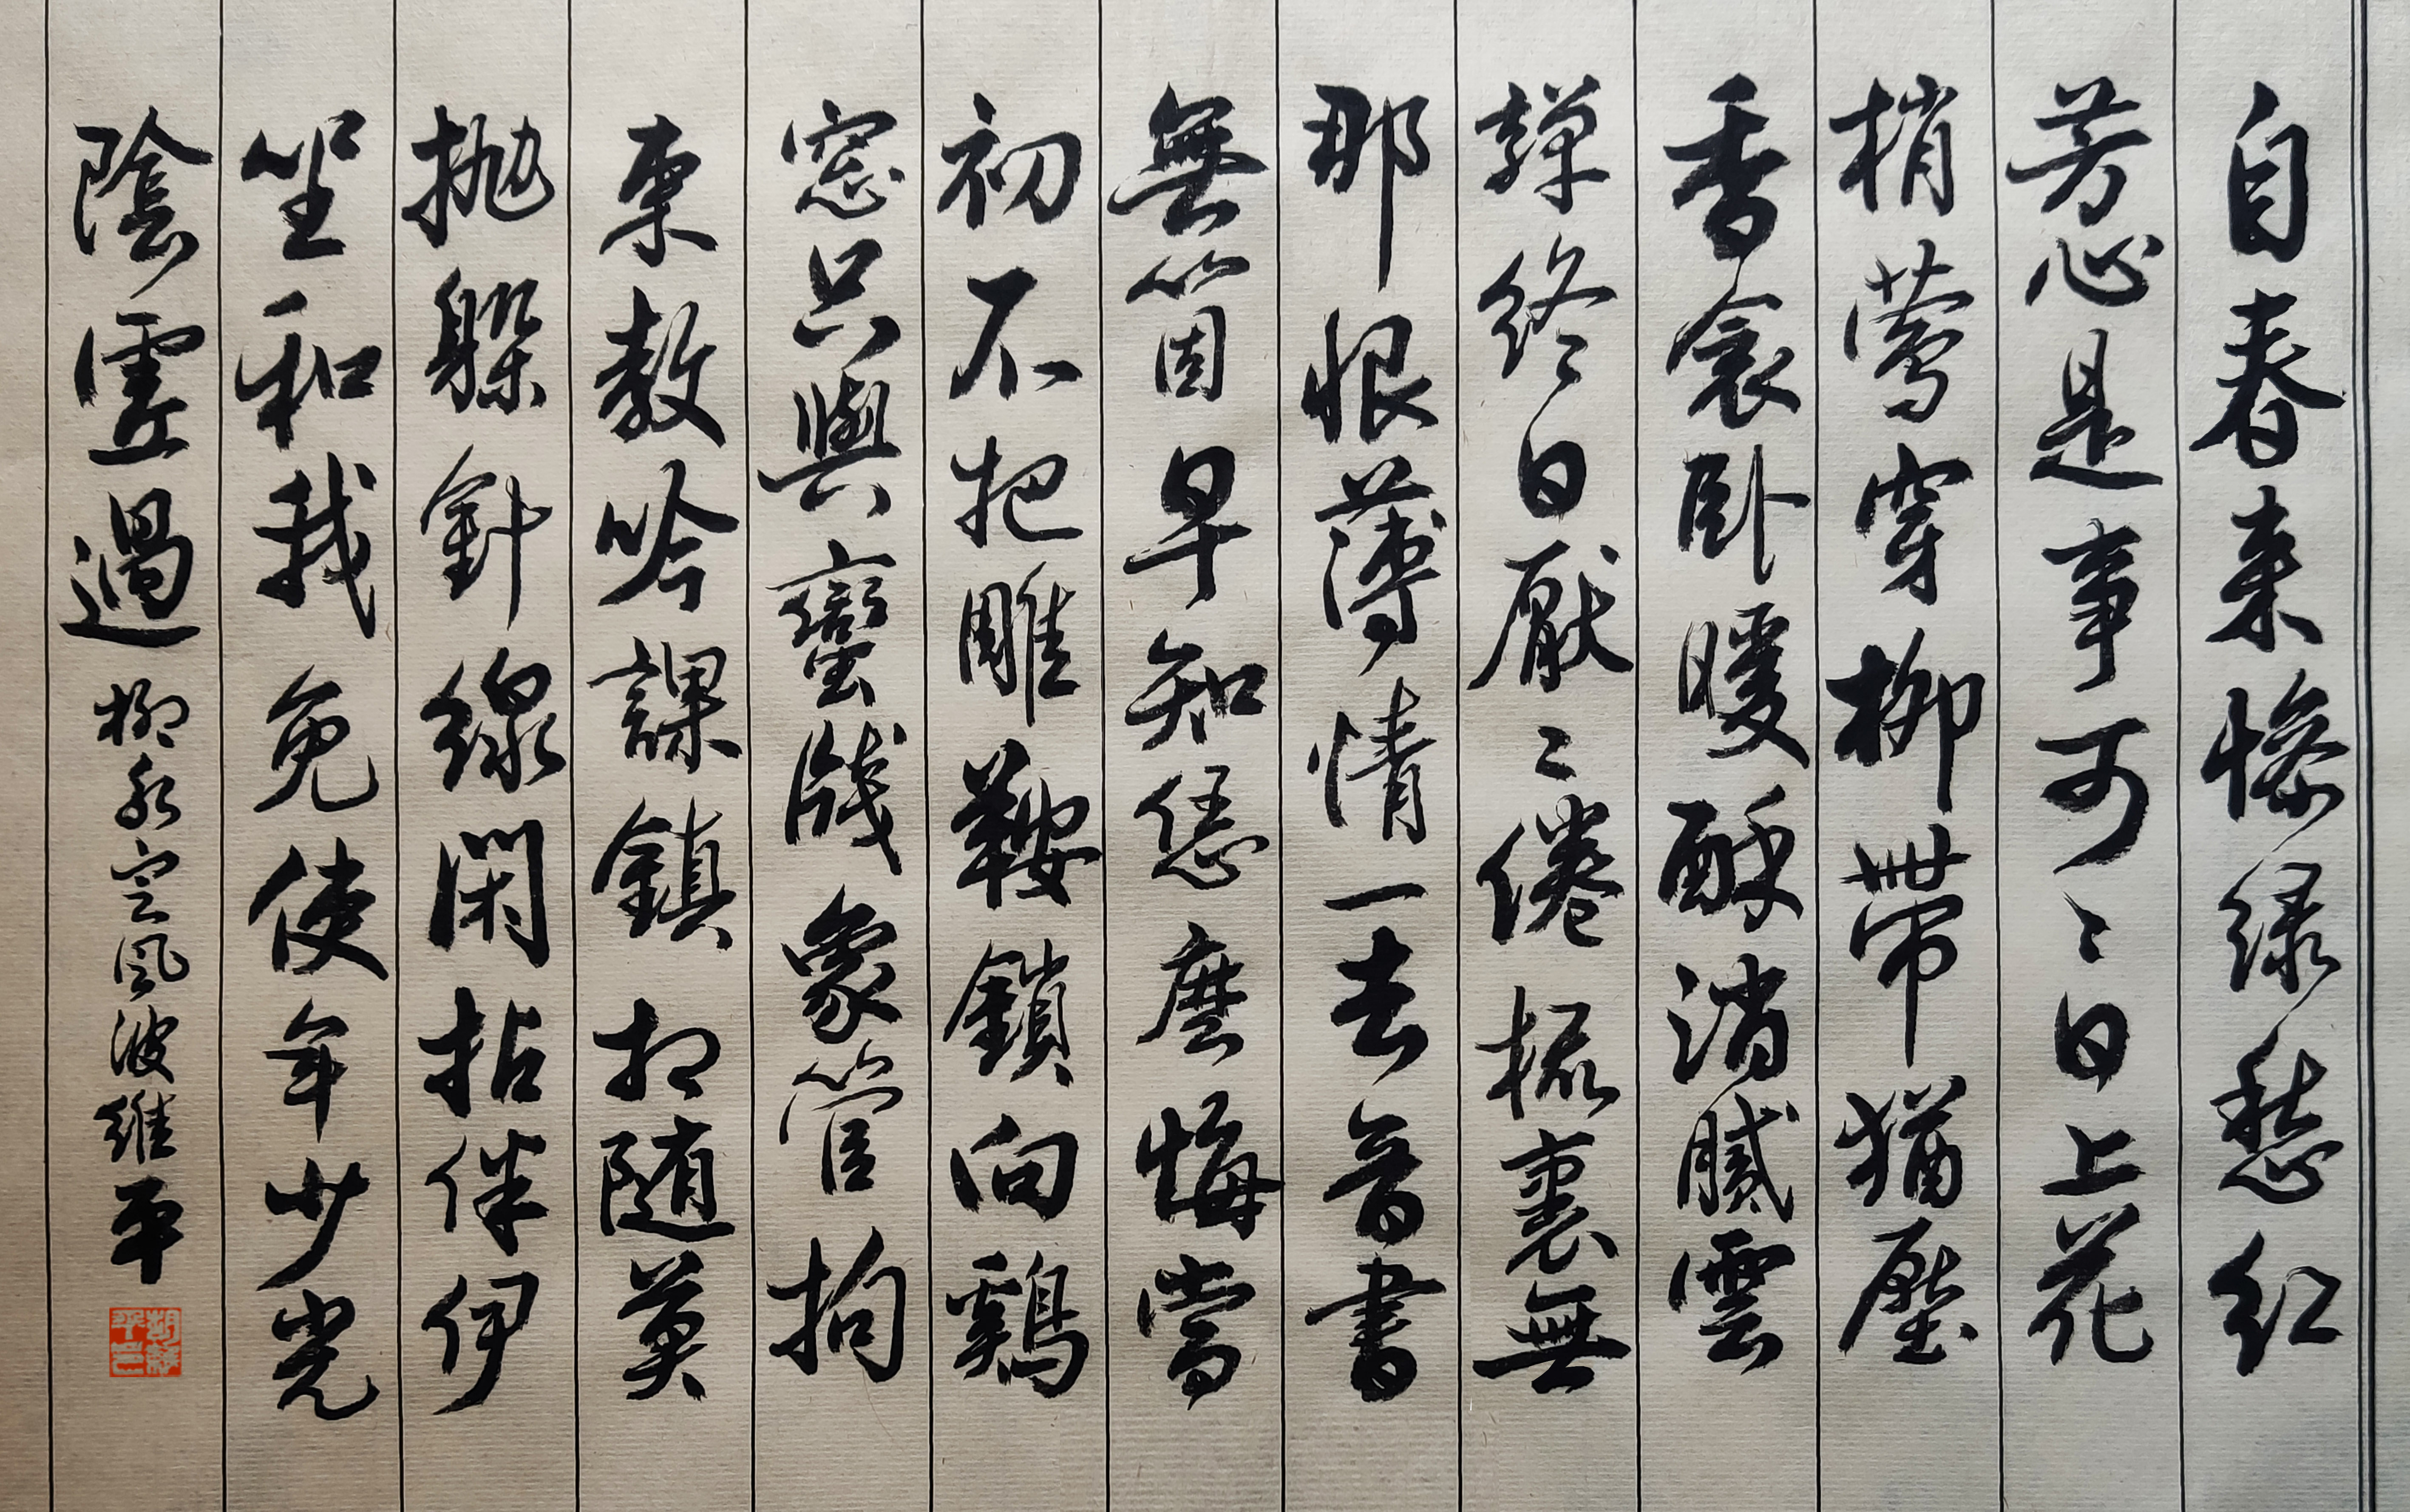 自春来惨绿愁红
芳心是事可〻日上花
梢莺穿柳带犹壓
香衾卧暖酥消腻雲
嚲终日厭〻倦梳裏無
那恨薄情一去音書
無箇早知恁麼悔當
初不把雕鞍鎖向鷄
窓只與蠻牋象管拘
束教吟課鎮相随莫
抛躲針線閑拈伴伊
坐和我免使年少光
陰虚過 柳永定風波 維平